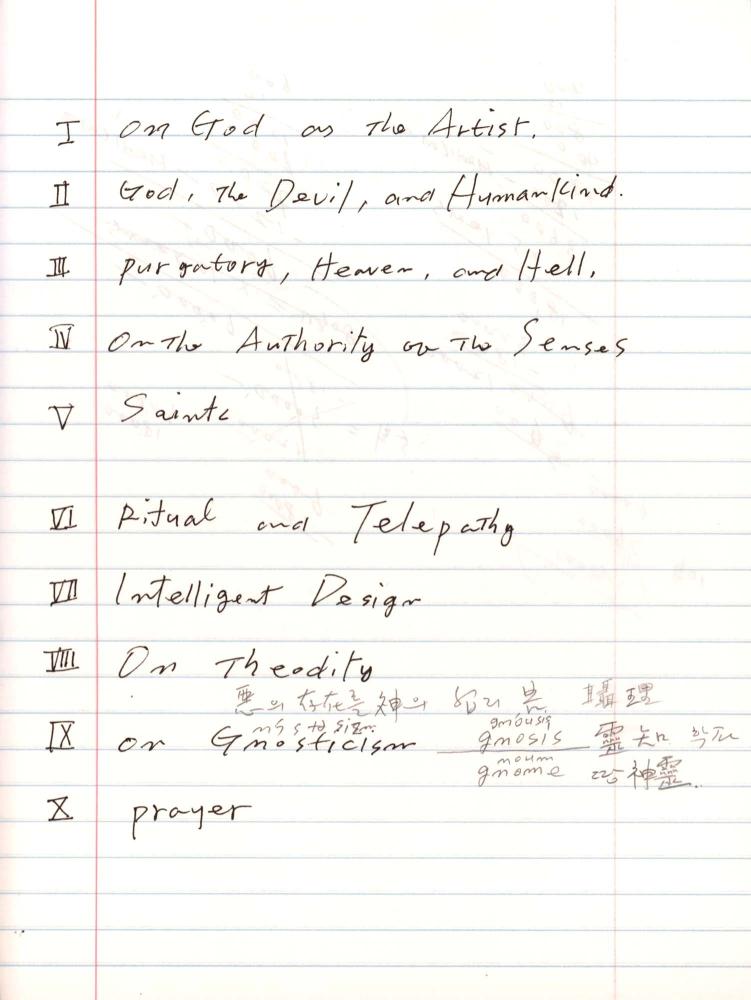 I On God as The Artist.
II God, The Devil, and Humankind.
III Purgatory, Heaven, and Hell.
IV On The Authority of The Senses
V Saints
VI Ritual and Telepathy
VII Intelligent Design
VIII On Theodity
惡의 存在를 神의 攝理
IX on Gnosticism gnosis 靈知
gnome 땅神靈.
X prayer